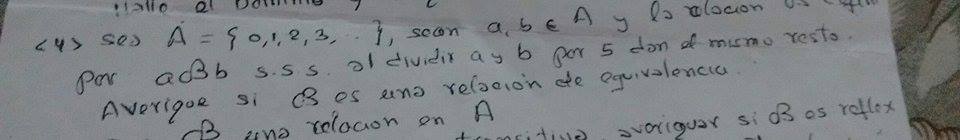 Hallo el
<4> sea A = {0,1,2,3,...}, sean a, b ∈ A y la relacion
por aβb s.s.s. al dividir a y b por 5 dan el mismo resto.
Averigue si β es una relacion de equivalencia.
β una relacion en A
averiguar si β es reflex